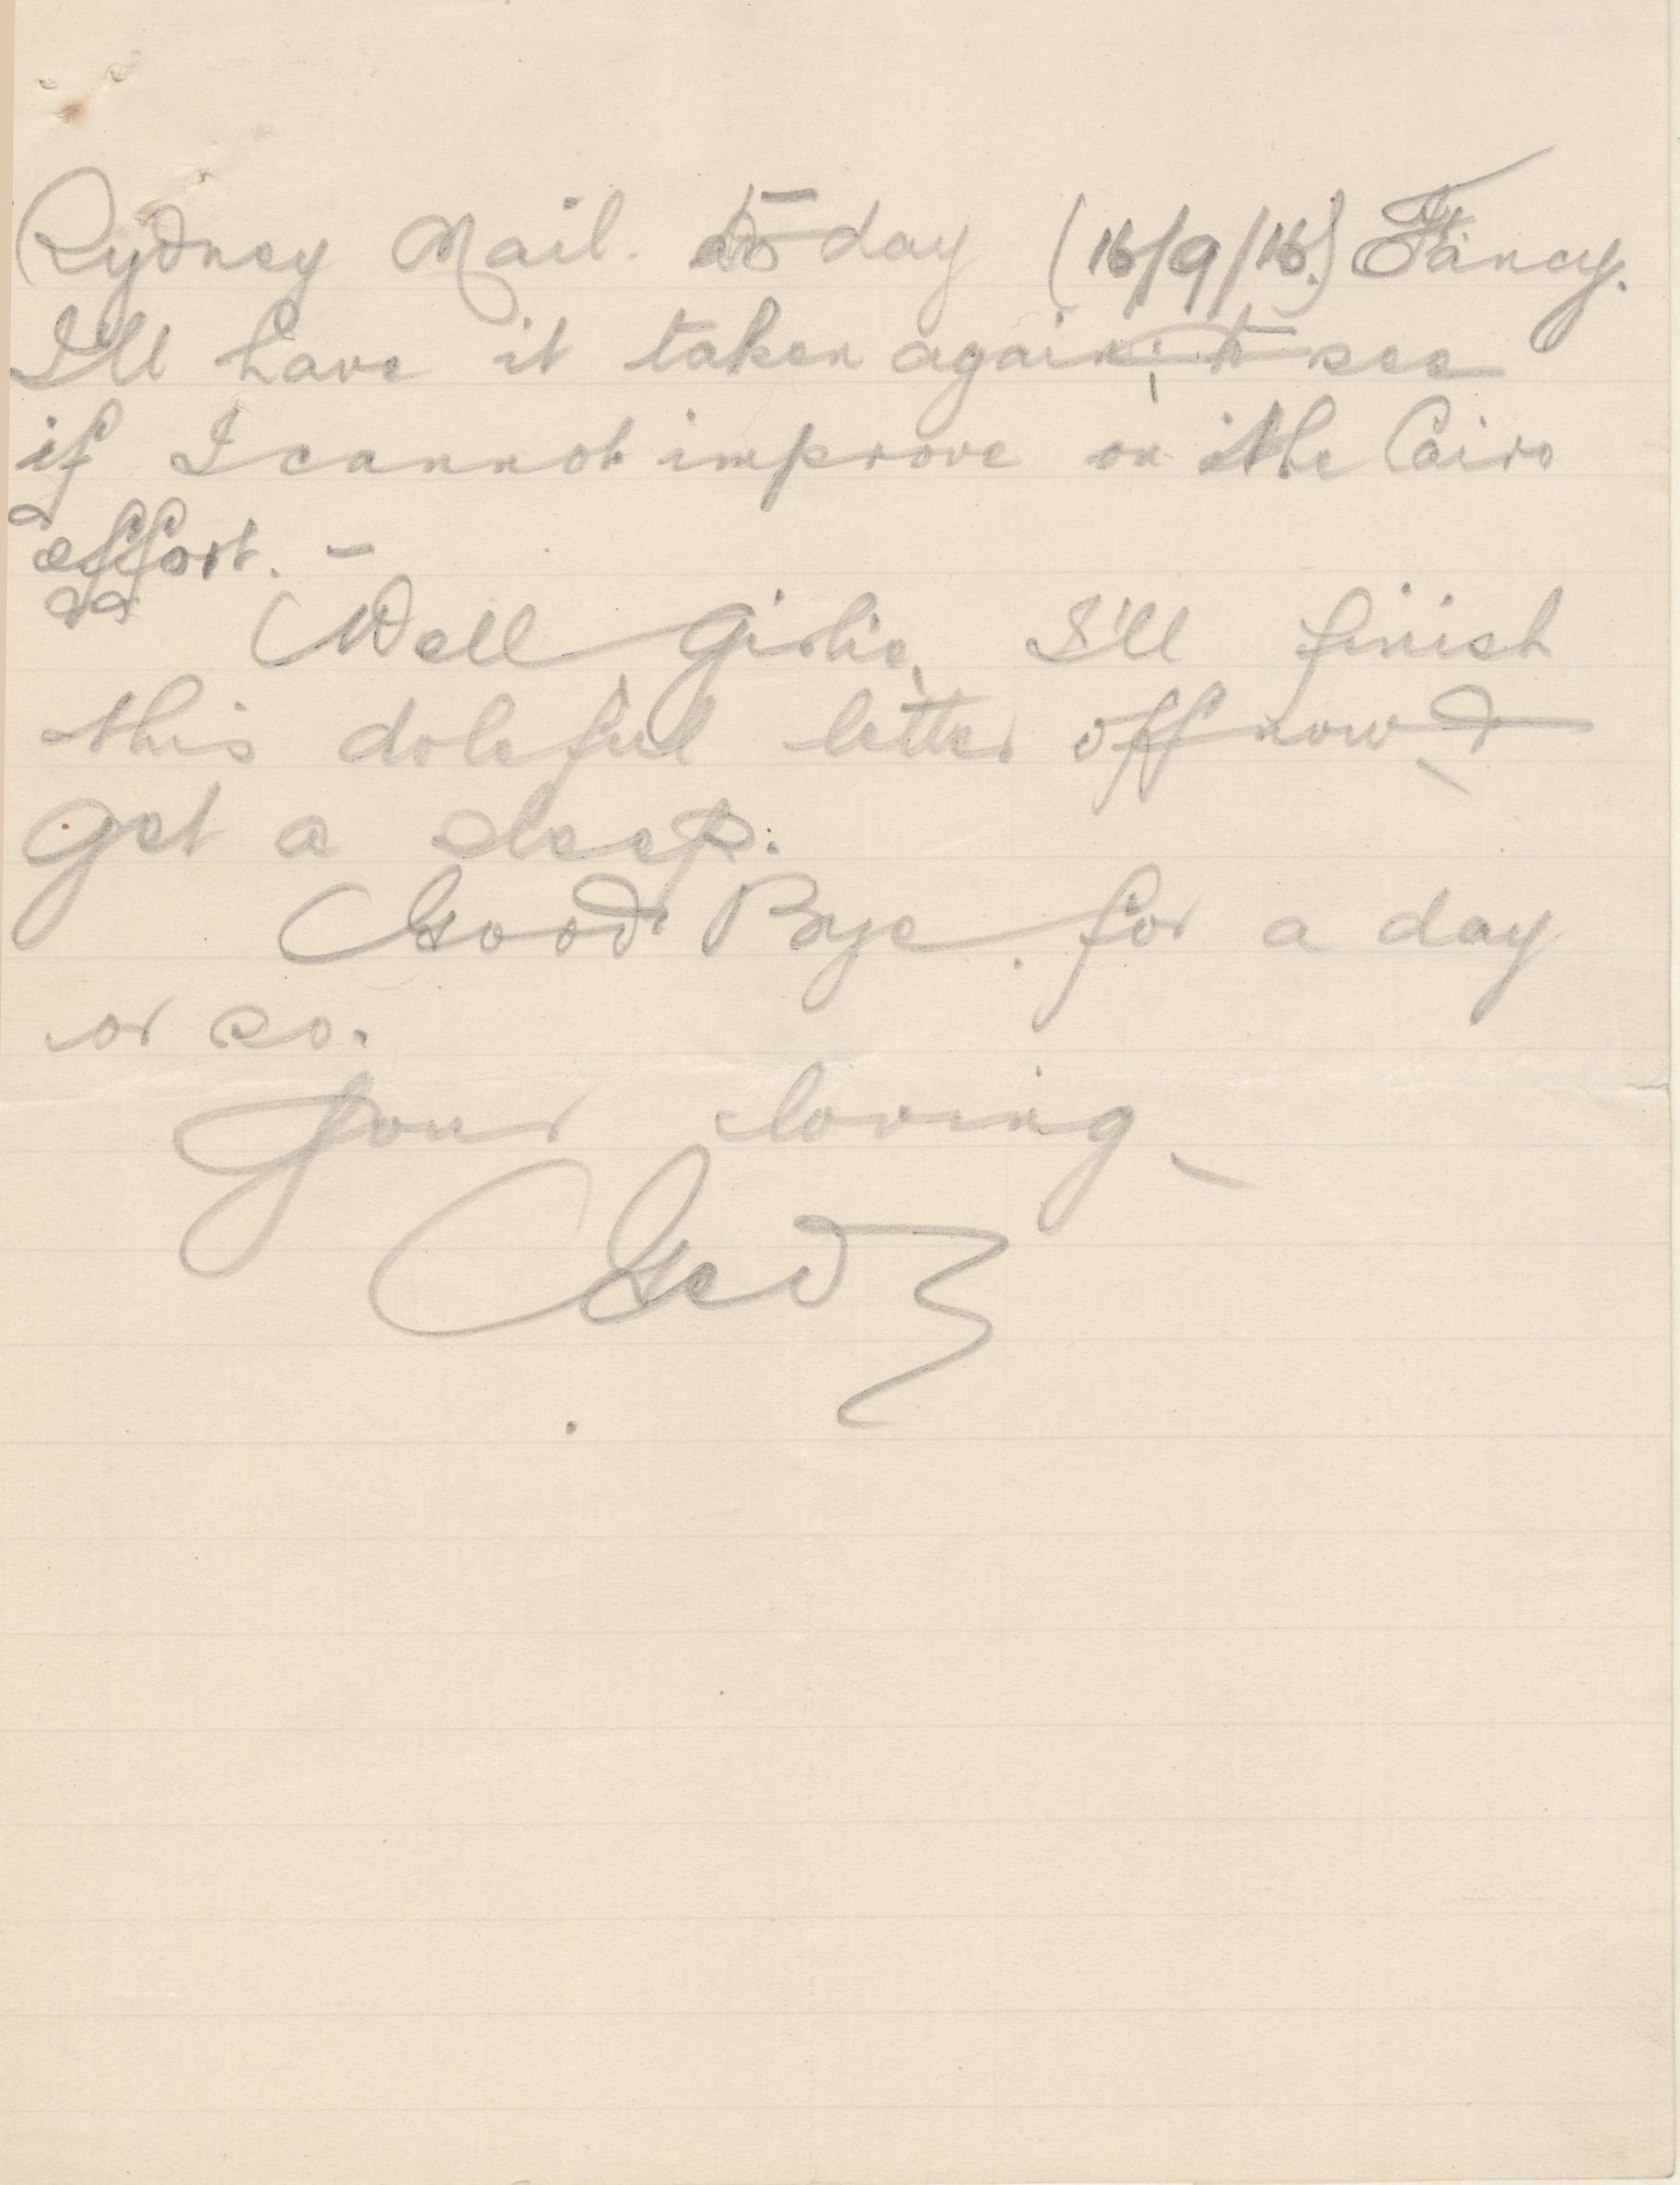 Sydney Mail. to day (16/9/16.) Fancy.
I'll have it taken again, to see
if I cannot improve on the Cairo
effort. -
Well Girlie, I'll finish
this doleful letter off now &
get a sleep.
Good Bye for a day
or so.
Your loving
Ged